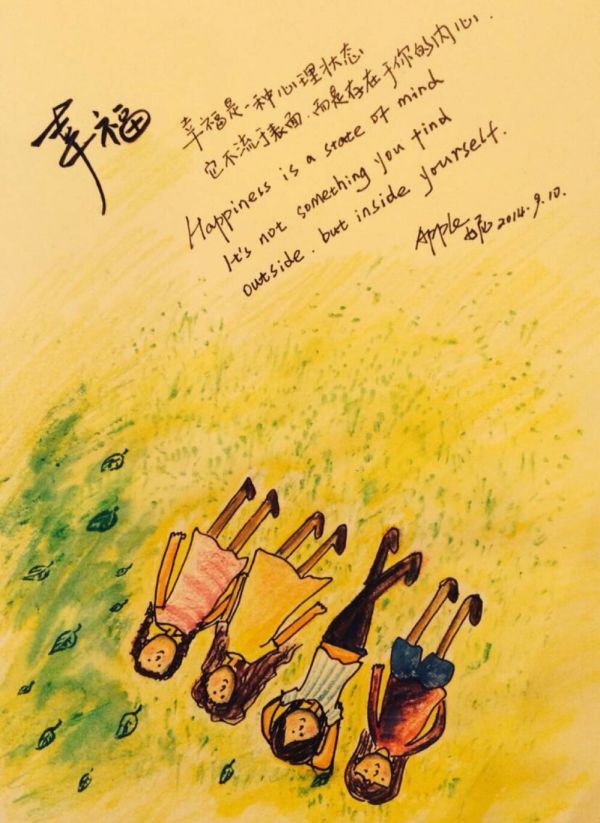 幸福
幸福是一种心理状态
它不流于表面.而是存在于你的内心.
Happiness is a state of mind
It's not something you find
outside. but inside yourself.
Apple 2014.9.10.